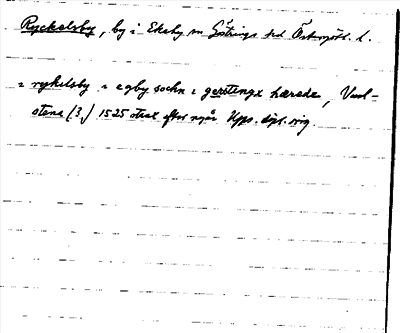 Ryckelsby, by i Ekeby sn Göstrings hd Östergötl. l.
i rykelsby i egby sochn i gerstinge hærade, Vad-
stena (?) 1525 otrat efter nyår Upps. dipl. orig.